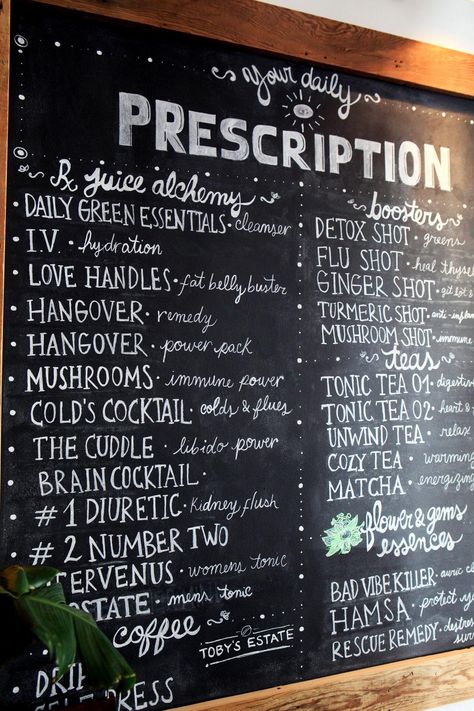 your daily
PRESCRIPTION
Rx juice alchemy
DAILY GREEN ESSENTIALS · cleanser
I.V. · hydration
LOVE HANDLES · fat belly buster
HANGOVER · remedy
HANGOVER · power pack
MUSHROOMS · immune power
COLD'S COCKTAIL · colds & flues
THE CUDDLE · libido power
BRAIN COCKTAIL ·
#1 DIURETIC · kidney flush
#2 NUMBER TWO
TERVENUS · womens tonic
OSTATE · mens tonic
coffee
TOBY'S ESTATE
DRIP
PRESS
boosters
DETOX SHOT · greens
FLU SHOT · heal
GINGER SHOT ·
TURMERIC SHOT · anti-
MUSHROOM SHOT · immune
teas
TONIC TEA 01 ·
TONIC TEA 02 · heart &
UNWIND TEA · relax
COZY TEA · warming
MATCHA · energizing
flower & gems
essences
BAD VIBE KILLER ·
HAMSA · protect
RESCUE REMEDY ·